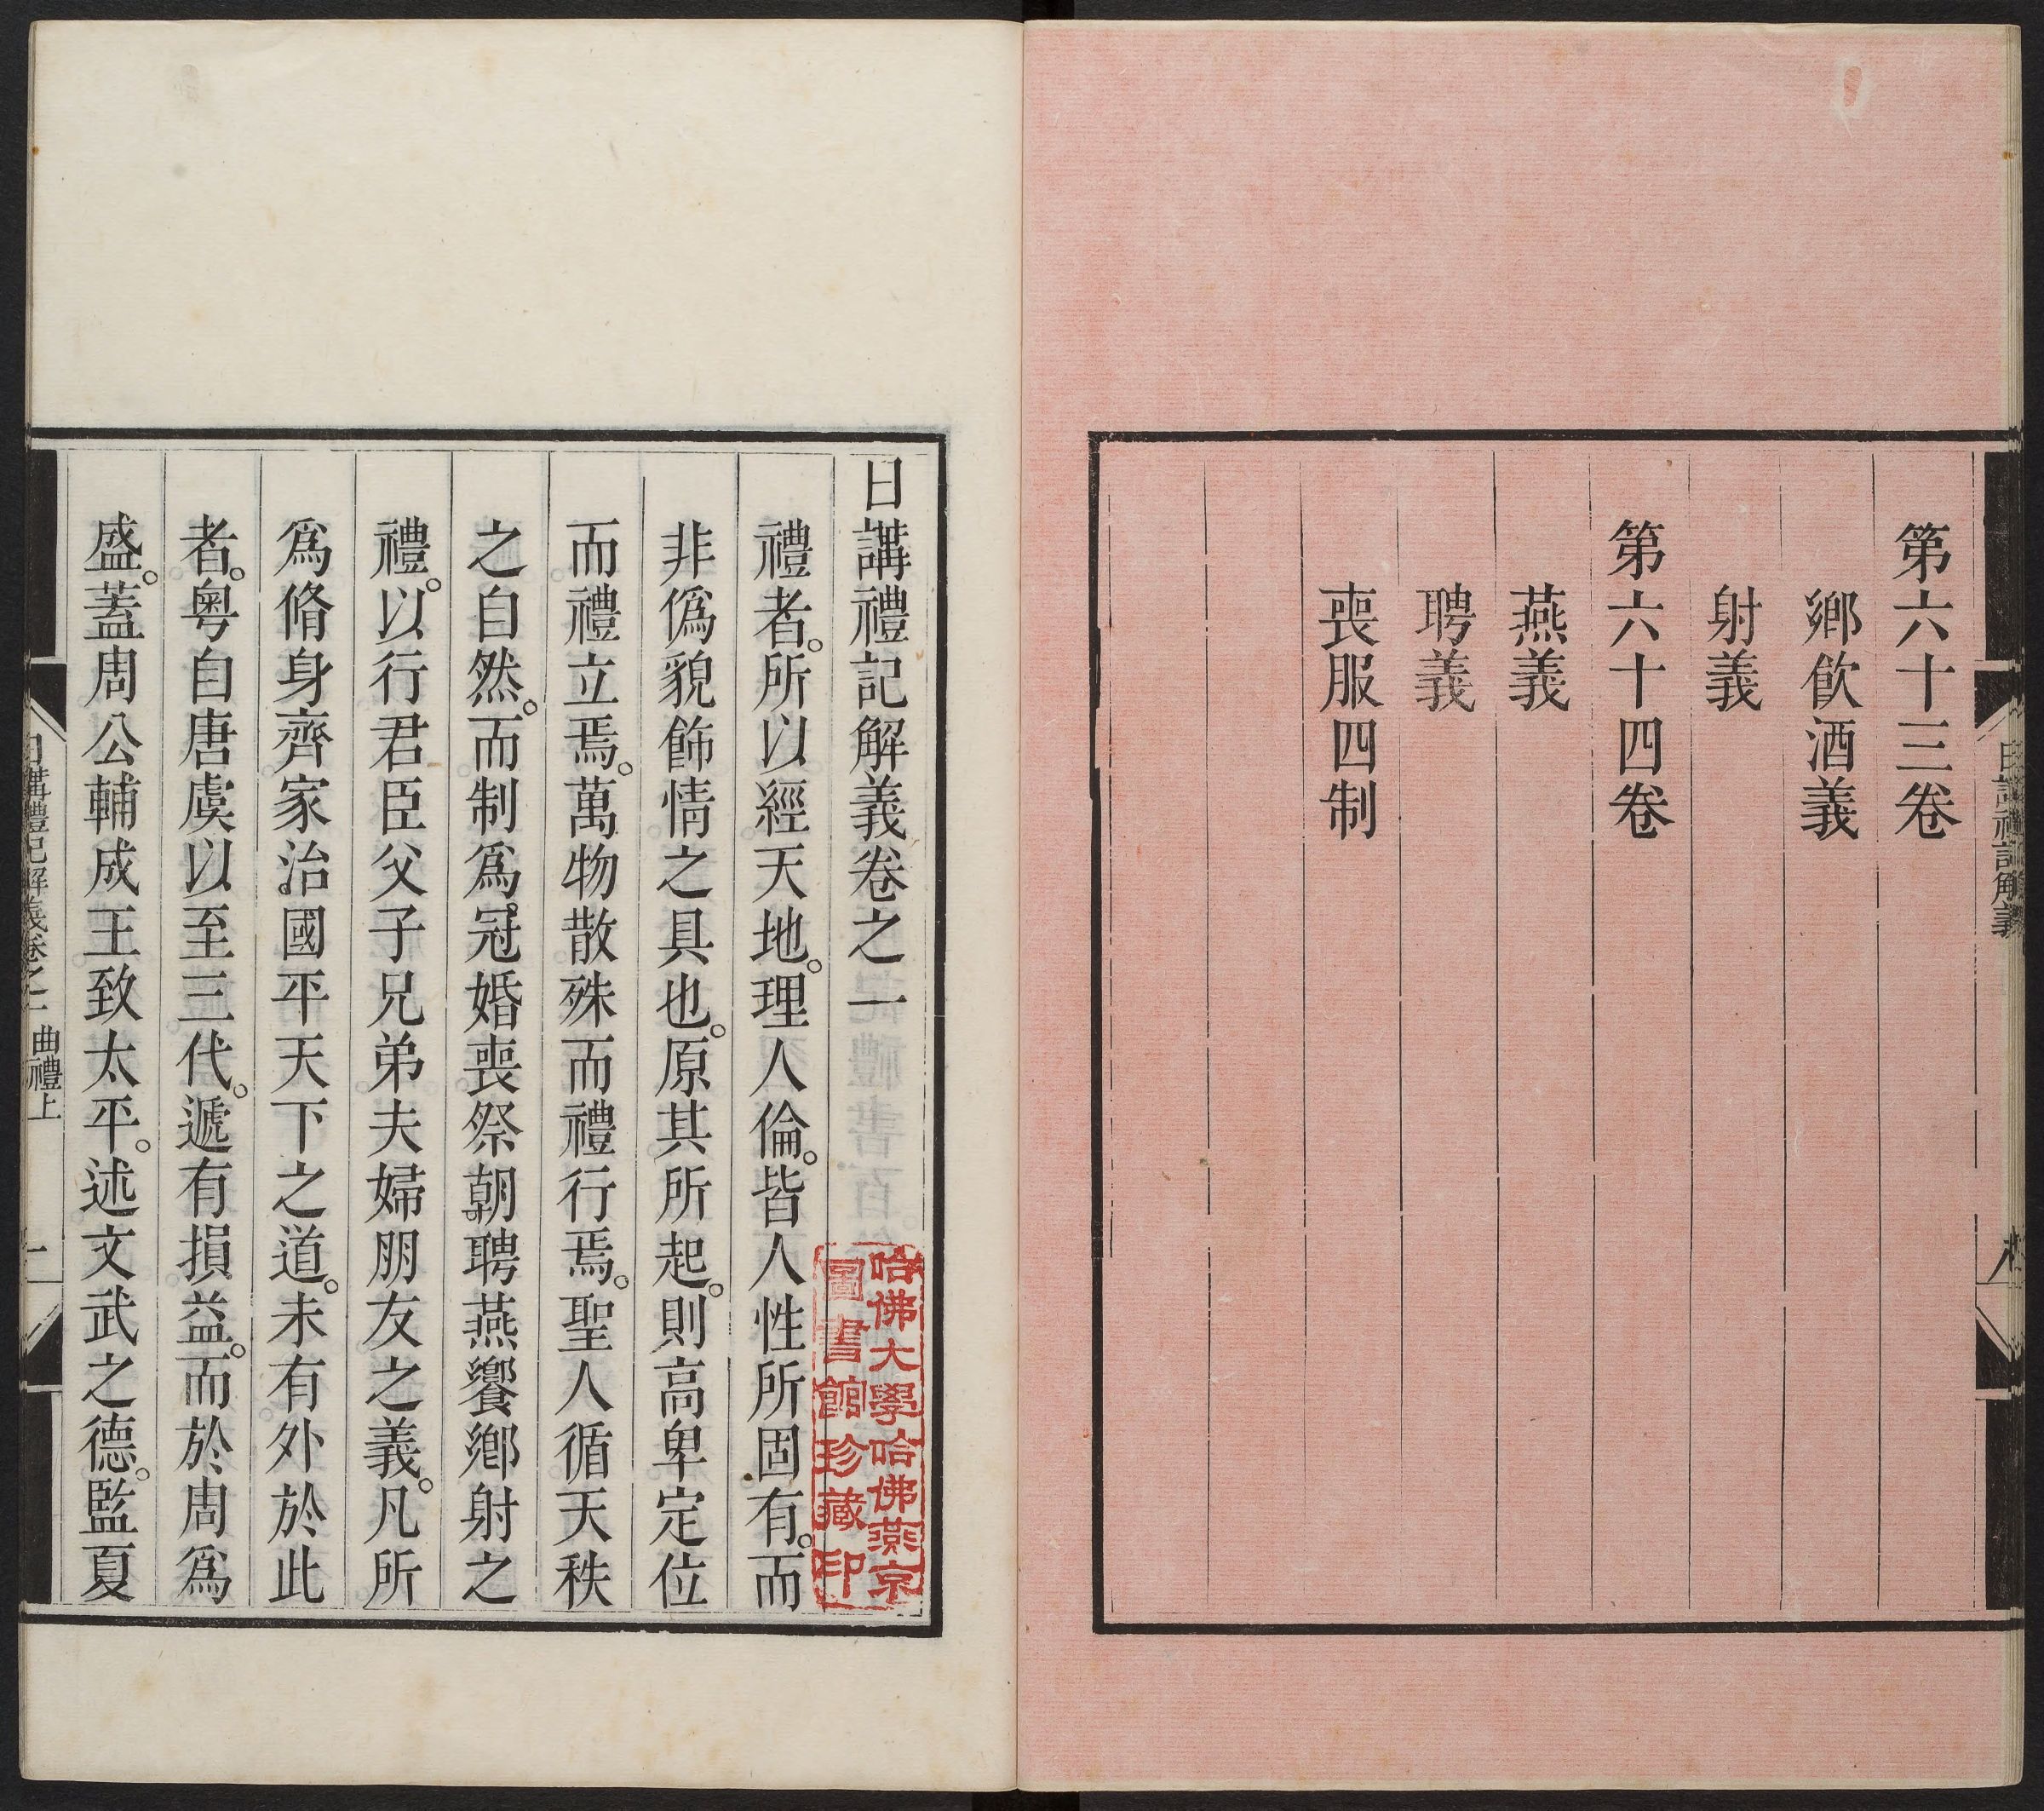 第六十三卷
鄉飲酒義
射義
第六十四卷
燕義
聘義
喪服四制
日講禮記解義卷之一
禮者。所以經天地。理人倫。皆人性所固有。而
非僞貌飾情之具也。原其所起。則高卑定位
而禮立焉。萬物散殊而禮行焉。聖人循天秩
之自然。而制爲冠婚喪祭朝聘燕饗鄉射之
禮。以行君臣父子兄弟夫婦朋友之義。凡所
爲脩身齊家治國平天下之道。未有外於此
者。粤自唐虞以至三代。遞有損益。而於周爲
盛。蓋周公輔成王致太平。述文武之德。監夏
日講禮記解義卷之一 曲禮上 一
哈佛大學哈佛燕京
圖書館珍藏印